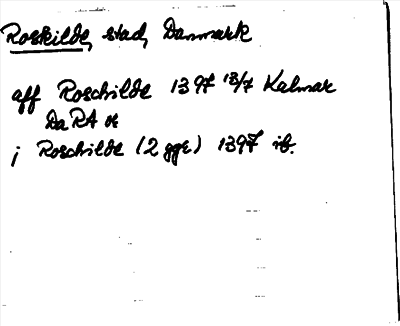 Roskilde, stad, Danmark
aff Roschilde 1397 13/7 Kalmar
DaRA or
j Roschilde (2 gge) 1397 ib.